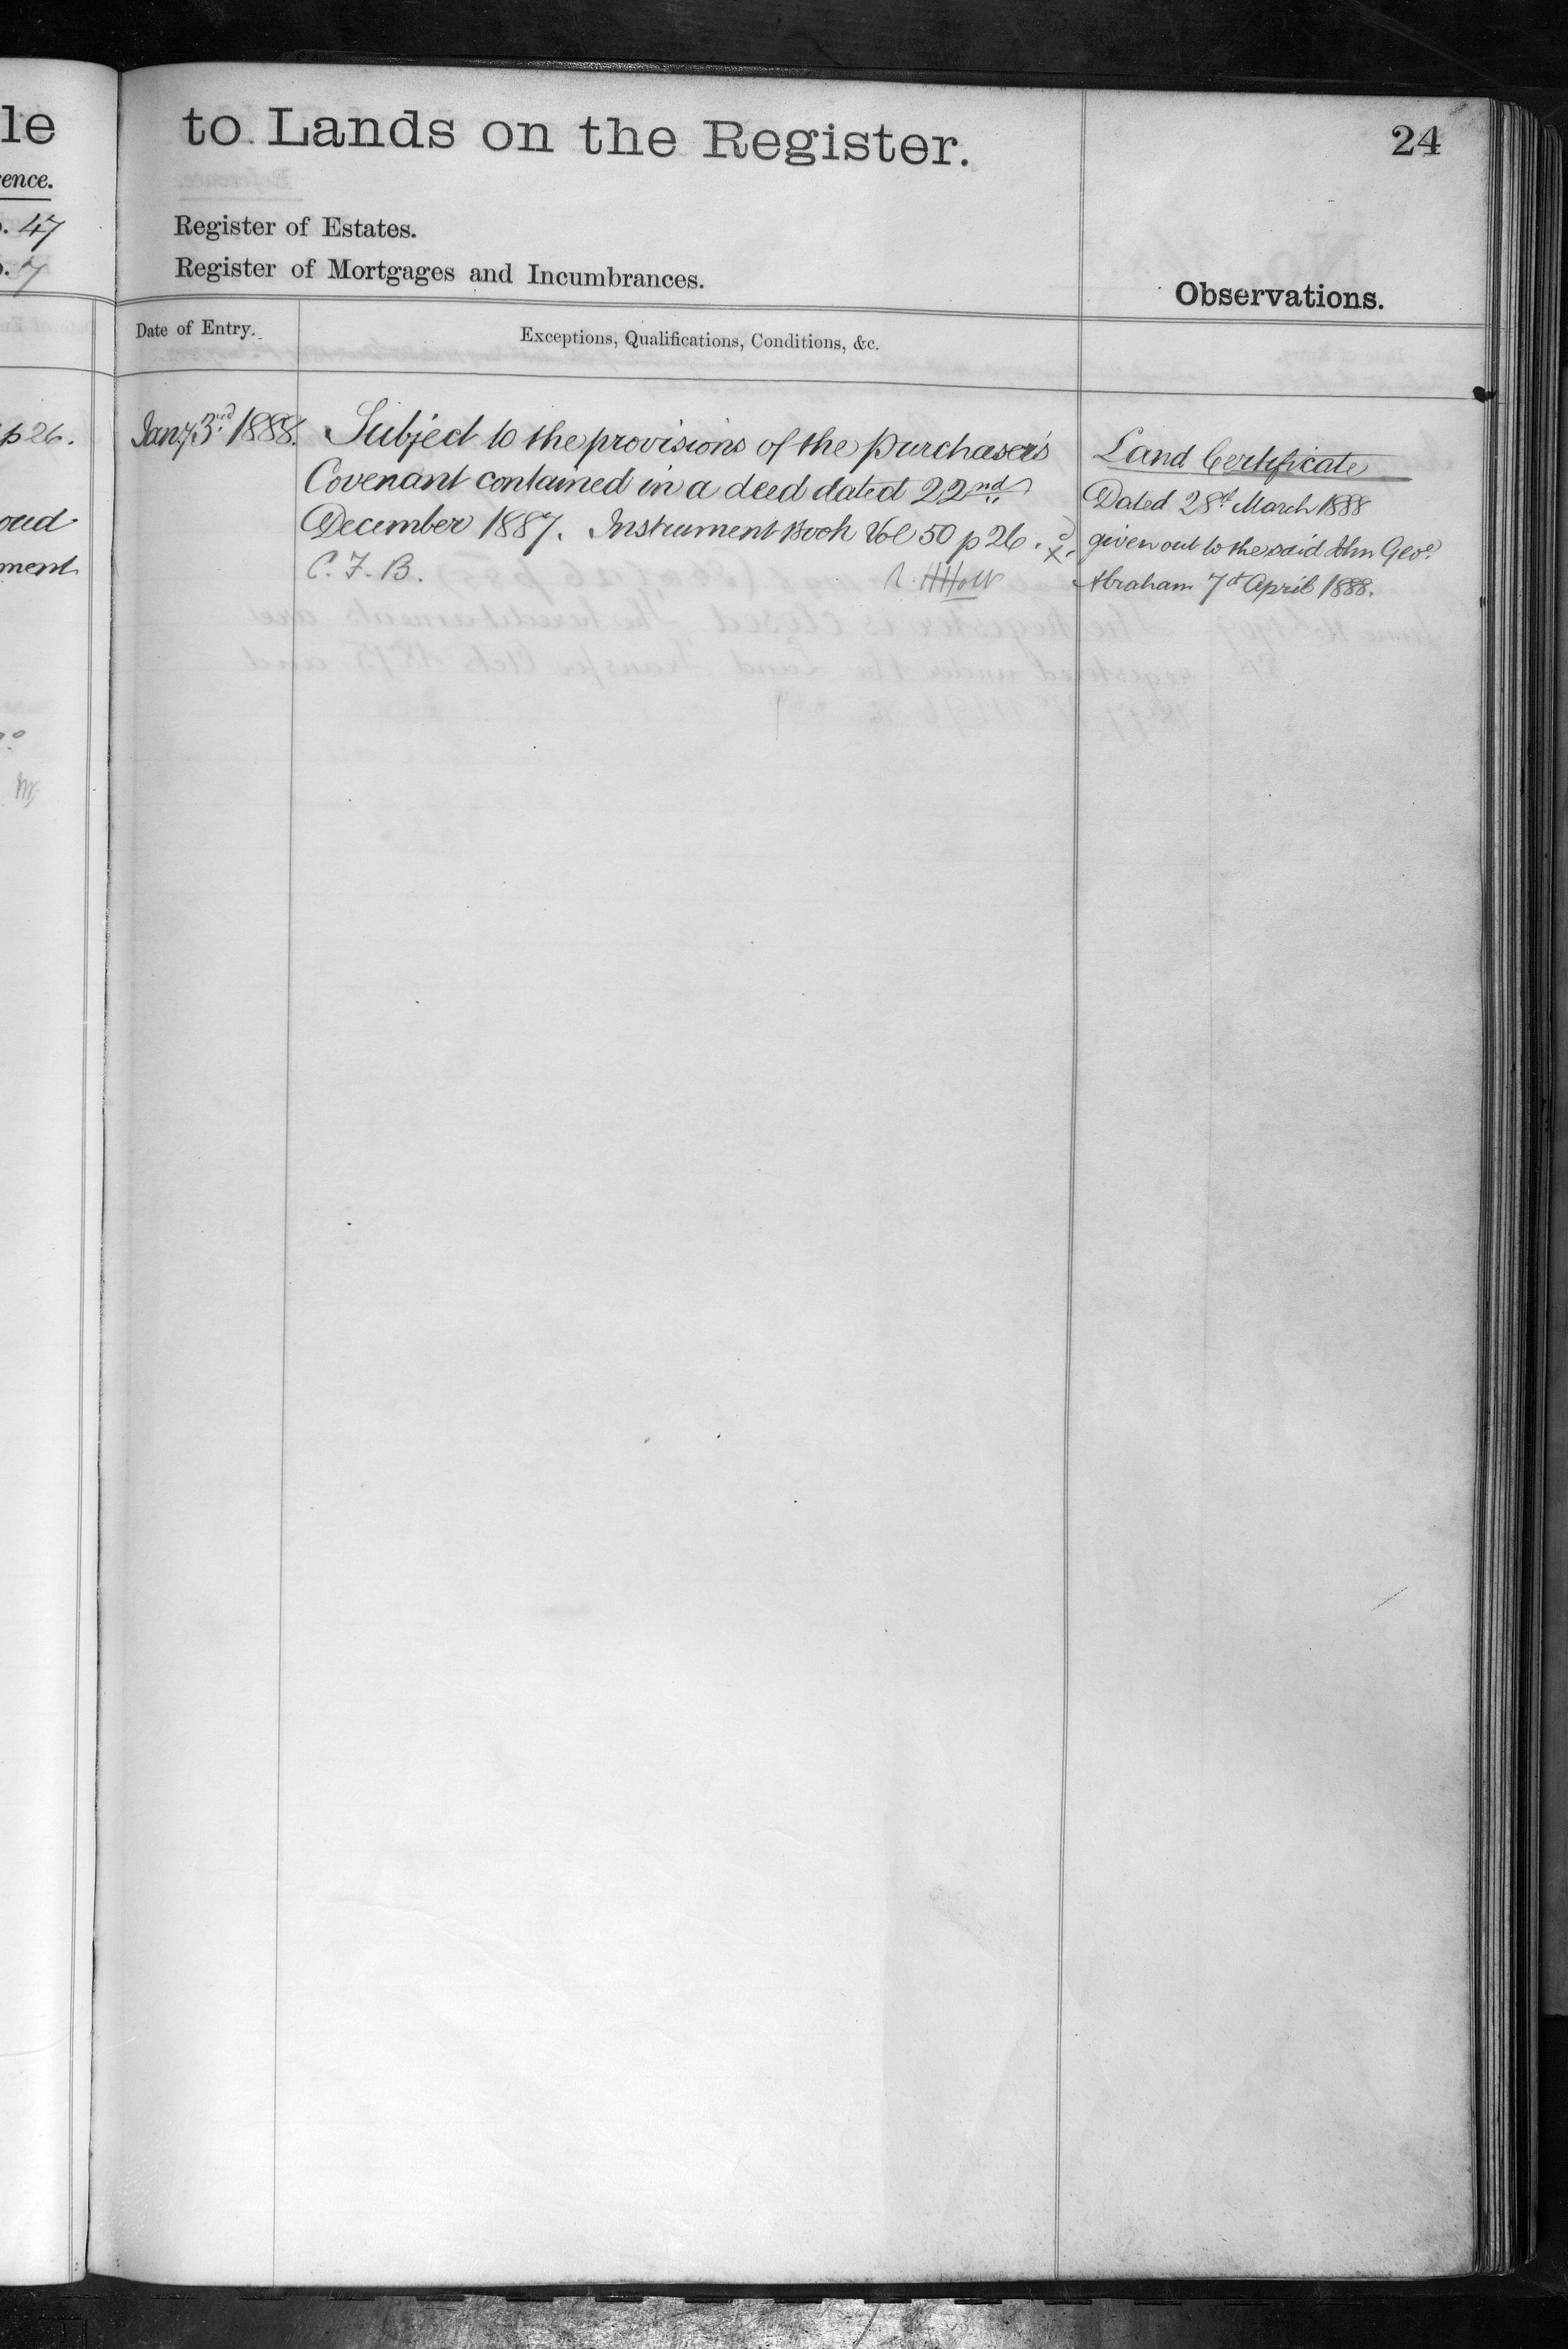 le
ence.
47
7
p 26.
oud
ment
to Lands on the Register.
24
Register of Estates.
Register of Mortgages and Incumbrances.
Observations.
Date of Entry.
Exceptions, Qualifications, Conditions, &c.
Jany 3rd 1888.
Subject to the provisions of the purchaser's
Covenant contained in a deed dated 22nd
December 1887. Instrument Book Vol 50 p 26.
C. F. B.
Holt
Land Certificate
Dated 28th March 1888
given out to the said John Geoe
Abraham 7th April 1888.